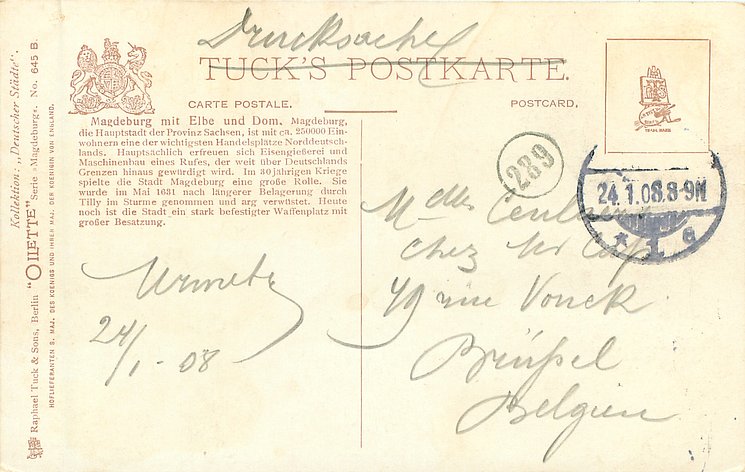 Drucksache
TUCK'S POSTKARTE.
CARTE POSTALE.
POSTCARD.
Magdeburg mit Elbe und Dom. Magdeburg,
die Hauptstadt der Provinz Sachsen, ist mit ca. 250000 Ein-
wohnern eine der wichtigsten Handelsplätze Norddeutsch-
lands. Hauptsächlich erfreuen sich Eisengießerei und
Maschinenbau eines Rufes, der weit über Deutschlands
Grenzen hinaus gewürdigt wird. Im 30jährigen Kriege
spielte die Stadt Magdeburg eine große Rolle. Sie
wurde im Mai 1631 nach längerer Belagerung durch
Tilly im Sturme genommen und arg verwüstet. Heute
noch ist die Stadt ein stark befestigter Waffenplatz mit
großer Besatzung.
24/1 - 08
289
24.1.08.8-9N
* 1 e
Mdlle
chez Mr
49 rue Vonck
Brüssel
Belgien
Kollektion: „Deutscher Städte".
Raphael Tuck & Sons, Berlin "OILETTE" Serie »Magdeburg«. No. 645 B.
HOFLIEFERANTEN S. MAJ. DES KOENIGS UND IHRER MAJ. DER KOENIGEN VON ENGLAND.